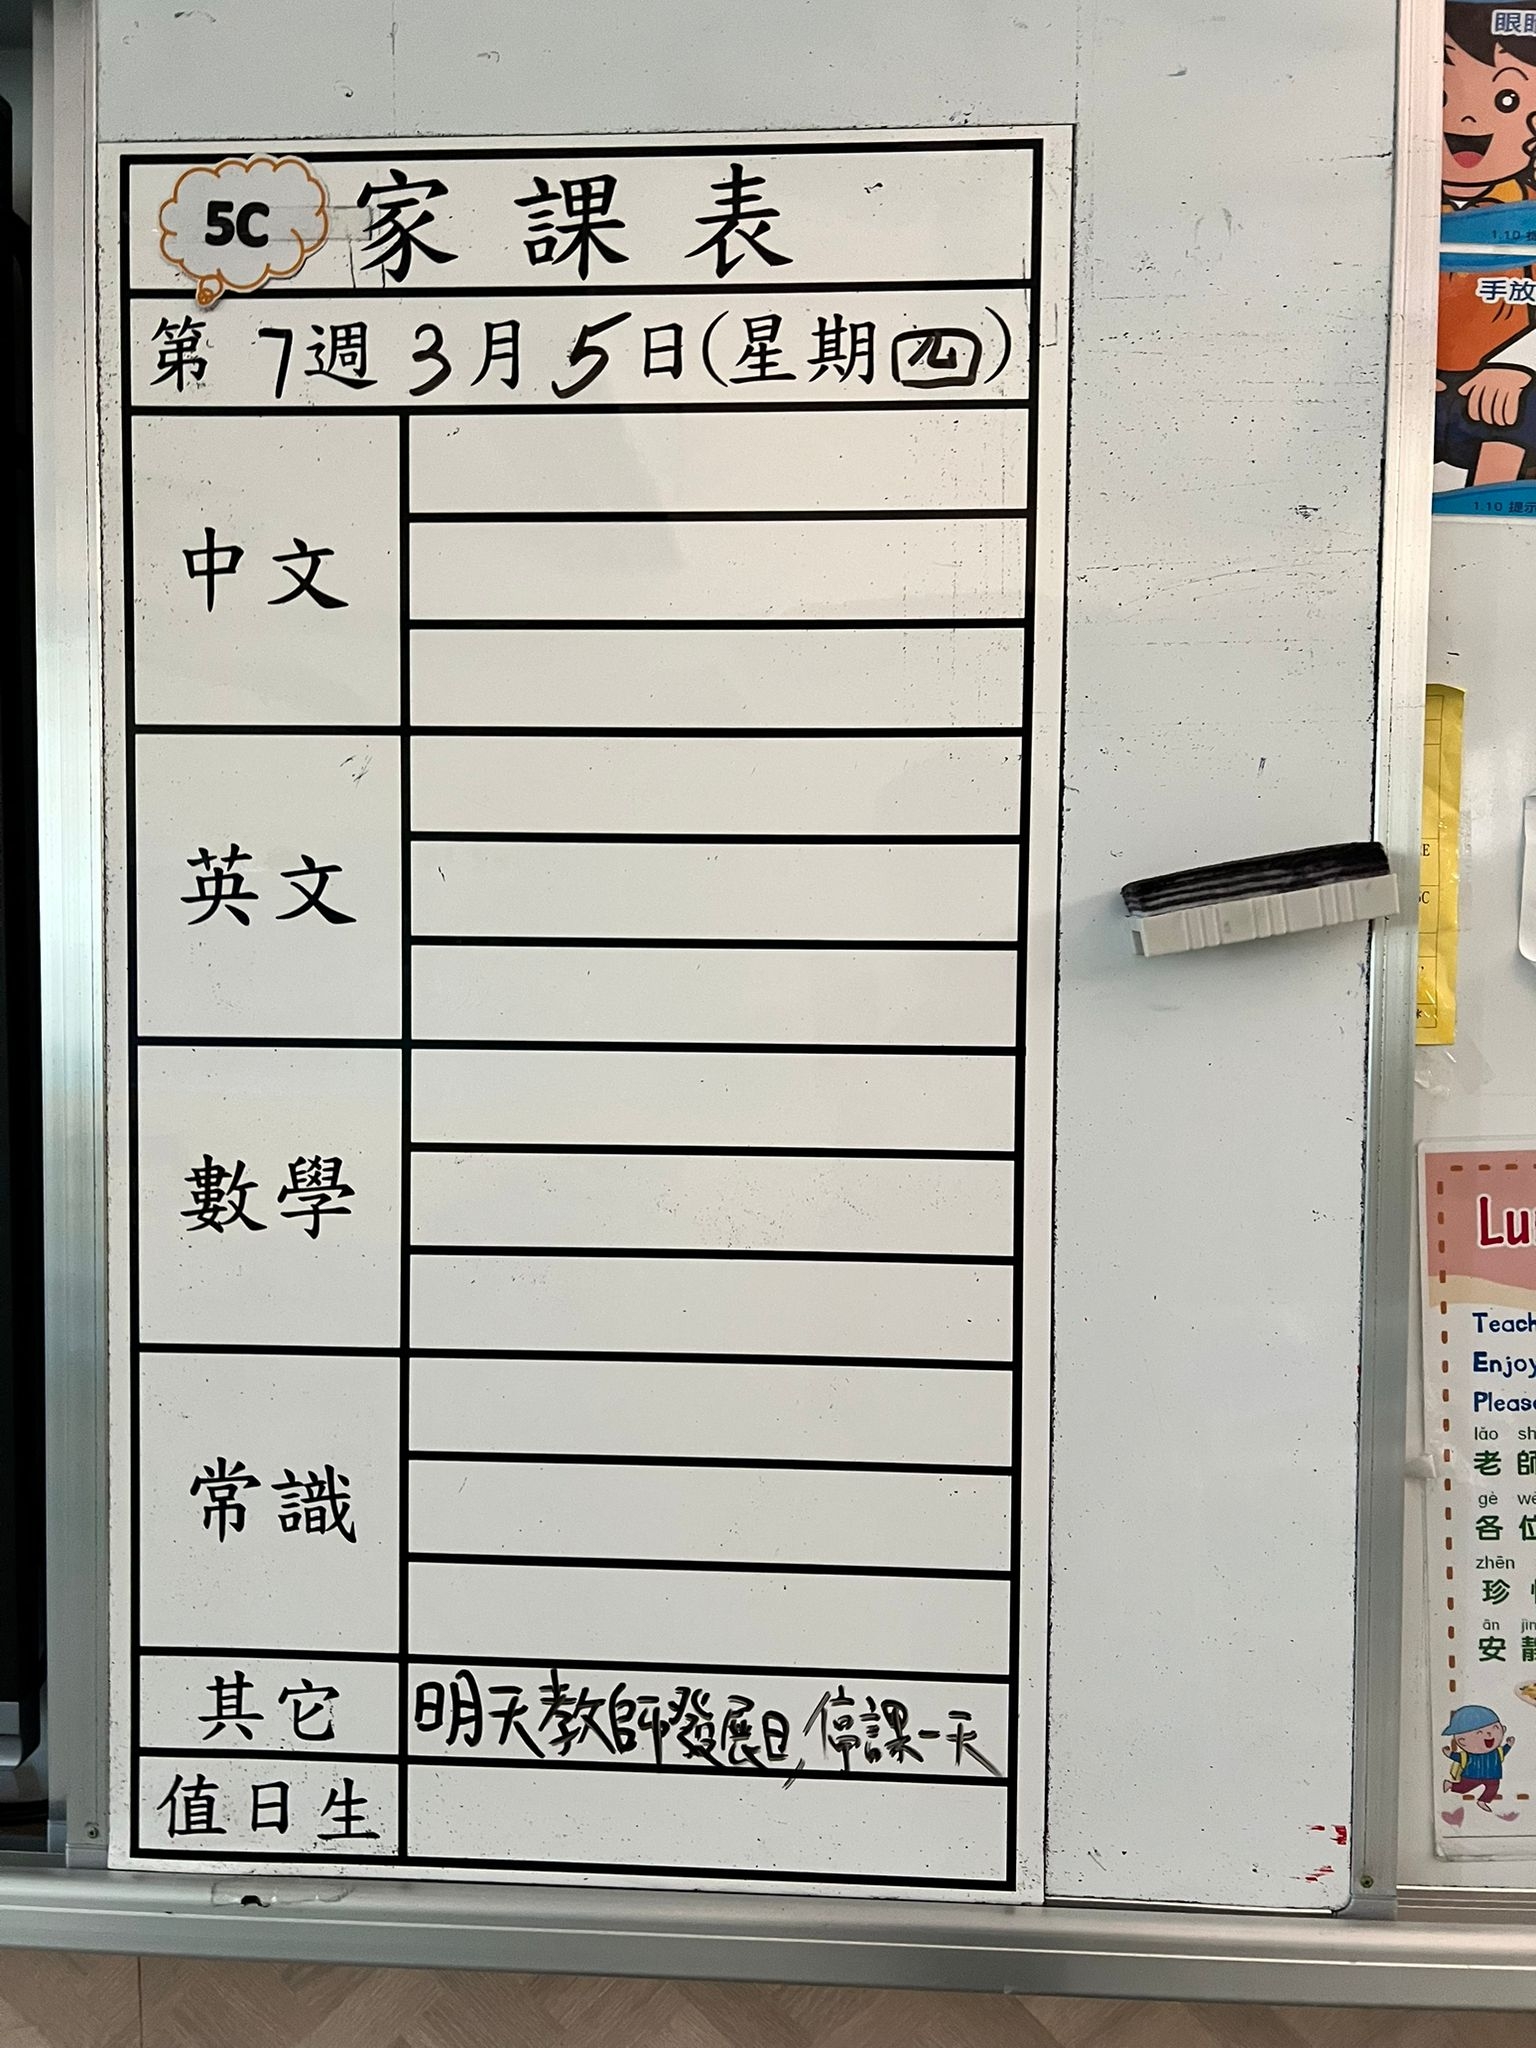 5C 家課表
第7週3月5日(星期四)
中文
英文
數學
常識
其它 明天教師發展日,停課一天
值日生
1.10
手放
1.10 提示
Teach
Enjoy
lǎo
老師
gè
各位
zhēn
珍
ān
安靜